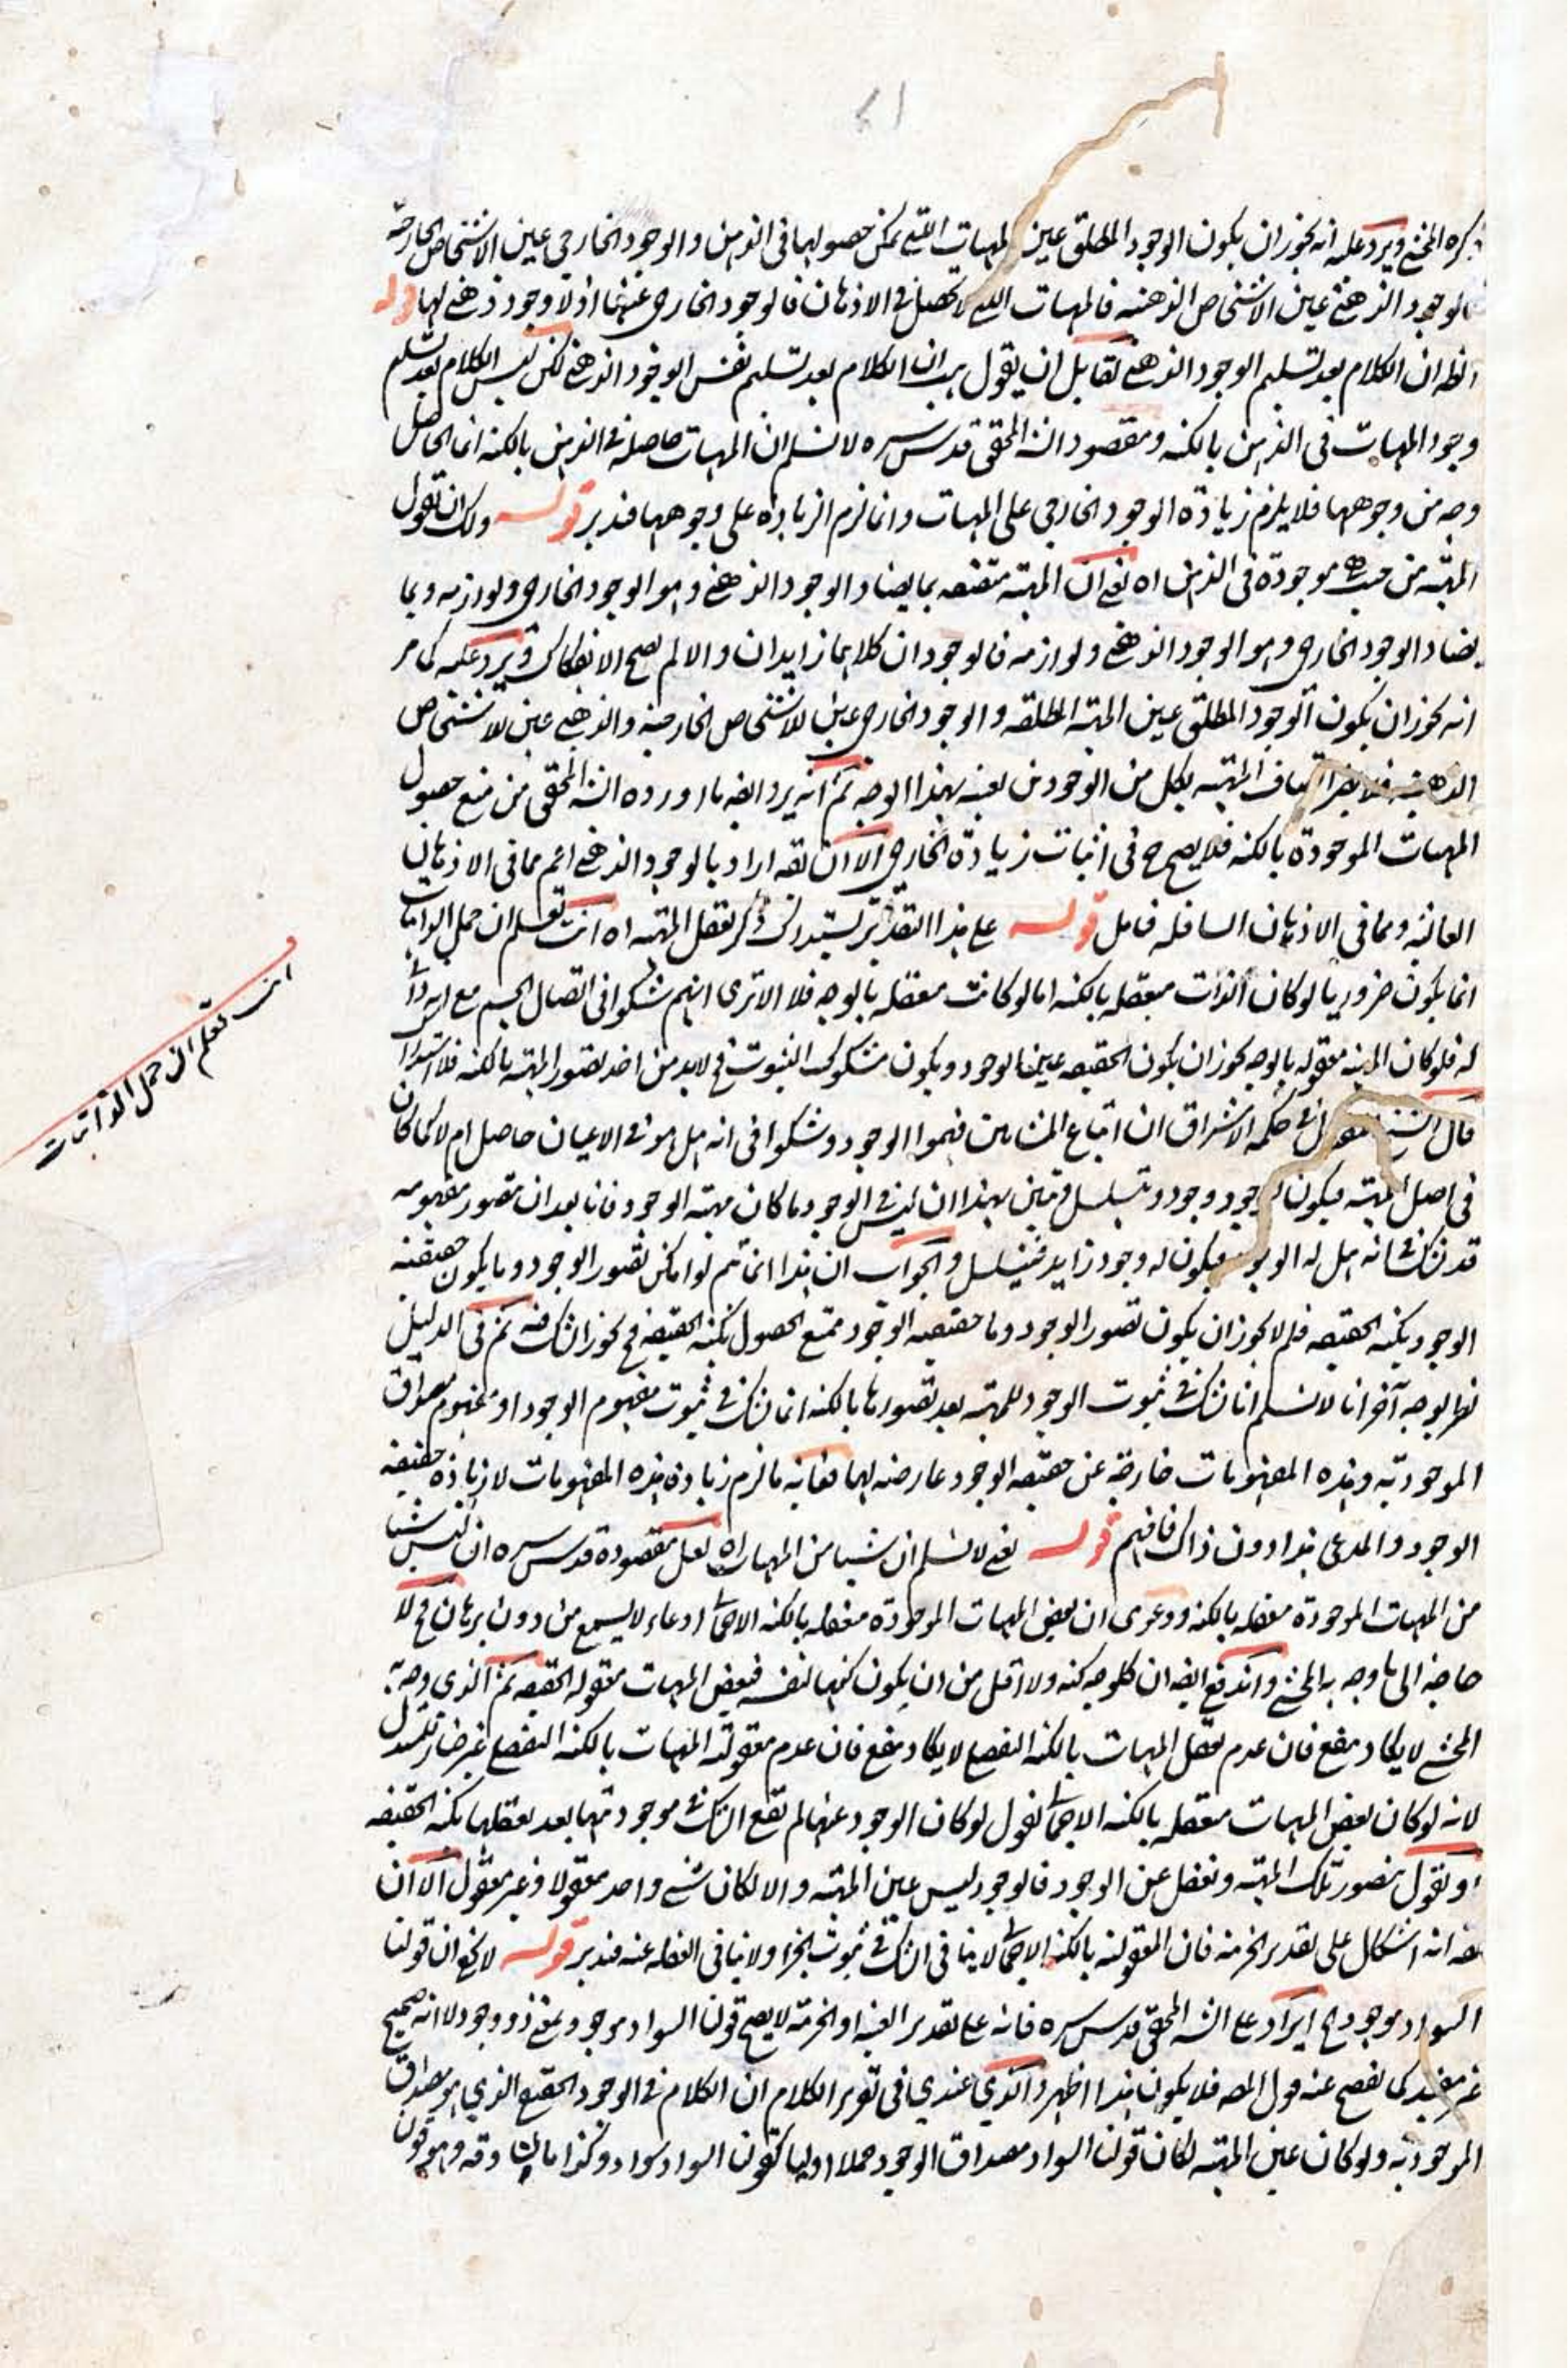 ذكره المحشي ويرد عليه انه يجوز ان يكون الوجود المطلق عين المهيات التي يمكن حصولها في الذهن والوجود الخارجي عين الاشخاص الخارجية
والوجود الذهني عين الاشخاص الذهنية فالمهيات التي لا تحصل في الاذهان فالوجود الخارجي عينها اذ لا وجود ذهني لها قوله
الظ ان الكلام بعد تسليم الوجود الذهني لقابل ان يقول هب ان الكلام بعد تسليم نفس الوجود الذهني لكن ليس الكلام بعد تسليم
وجود المهيات في الذهن بالكنه ومقصود الشه المحقق قدس سره لا نسلم ان المهيات حاصلة في الذهن بالكنه انما الحاصل
وجه من وجوهها فلا يلزم زيادة الوجود الخارجي على المهيات وانما لزم الزيادة على وجوهها فتدبر قوله ولك ان تقول
المهية من حيث هي موجودة في الذهن اه يعني ان المهية متصفة بما يضاد الوجود الذهني وهو الوجود الخارجي ولوازمه وبما
يضاد الوجود الخارجي وهو الوجود الذهني ولوازمه فالوجودان كلاهما زايدان والا لم يصح الانفكاك ويرد عليه كما مر
انه يجوز ان يكون الوجود المطلق عين المهية المطلقة والوجود الخارجي عين للاشخاص الخارجية والذهني عين للاشخاص
الذهنية فلا يضر اتصاف المهية بكل من الوجودين بعينه بهذا الوجه ثم انه يرد ايضه ما اورده الشه المحقق من منع حصول
المهيات الموجودة بالكنه فلا يصح ح في اثبات زيادة الخارجي الا ان يقه اراد بالوجود الذهني اعم مما في الاذهان
العالية ومما في الاذهان السافلة فامل قوله على هذا التقدير يستدرك ذكر تعقل المهية اه انت تعلم ان حمل الذاتيات
انما يكون ضروريا لو كان الذات متعقلة بالكنه اما لو كانت متعقلة بالوجه فلا الا ترى انهم شكوا في اتصال الجسم مع انه ذاتي
له فلو كان المهية معقوله بالوجه يجوز ان يكون الحقيقه عينها الوجود ويكون مشكوك الثبوت فح لابد من اخذ تصور المهية بالكنه فلا استدراك
قال الشيخ المقتول في حكمة الاشراق ان اتباع المشايين فهموا الوجود وشكوا في انه هل هو في الاعيان حاصل ام لا كما كان
في اصل المهية فيكون للوجود وجود ويتسلسل فتبين بهذا ان ليس في الوجود ما كان مهية الوجود فانا بعد ان نتصور مفهومه
قد نشك في انه هل له الوجود فيكون له وجود زايد فيتسلسل والجواب ان هذا انما يتم لو امكن تصور الوجود وما يكون حقيقته
الوجود بكنه الحقيقه فلم لا يجوز ان يكون تصور الوجود وما حقيقته الوجود ممتنع الحصول بكنه الحقيقه فح يجوز الشك فيه ثم في الدليل
نظر بوجه آخر انا لا نسلم انا نشك في ثبوت الوجود للمهية بعد تصورها بالكنه انما نشك في ثبوت مفهوم الوجود او مفهوم مصداق
الموجودية وهذه المفهومات خارجة عن حقيقة الوجود عارضة لها فغاية ما لزم زيادة هذه المفهومات لا زيادة حقيقة
الوجود والمدعى هذا دون ذاك فافهم قوله يعني لا نسلم ان شيا من المهيات اه لعل مقصوده قدس سره ان ليس شيا
من المهيات الموجودة معقله بالكنه ودعوى ان بعض المهيات الموجودة معقله بالكنه الاجمالي ادعاء لا يسمع من دون برهان فح لا
حاجة الى ما وجه به المحشي واندفع ايضه ان كل وجه كنه ولا اقل من ان يكون كنها لنفسه فبعض المهيات معقوله الحقيقه ثم الذي وجه به
المحشي لا يكاد ينفع فان عدم تعقل المهيات بالكنه التفصيلي لا يكاد ينفع فان عدم معقولية المهيات بالكنه التفصيلي غير ضار للمستدل
لانه لو كان بعض المهيات متعقله بالكنه الاجمالي نقول لو كان الوجود عينها لم يقع الشك في موجوديتها بعد تعقلها بكنه الحقيقه
او نقول نتصور تلك المهية ونغفل عن الوجود فالوجود ليس عين المهية والا لكان شي واحد معقولا وغير معقول الا ان
يقه انه اشكال على تقدير الجزئية فان المعقولية بالكنه الاجمالي لا ينافي الشك في ثبوت الجزء ولا ينافي الغفلة عنه فتدبر قوله لا يخفى ان قولنا
السواد موجود اه ايراد على الشه المحقق قدس سره فانه على تقدير العينية او الجزئية لا يصح قولنا السواد موجود بمعنى ذو وجود لا انه صحيح
غير مفيد كما يفصح عنه قول المص فلا يكون هذا اظهر والذي عندي في تقرير الكلام ان الكلام في الوجود الحقيقي الذي هو مصداق
الموجودية ولو كان عين المهية لكان قولنا السواد مصداق الوجود حملا اوليا كقولنا السواد سواد وكذا ما وهو قولنا
انت تعلم ان حمل الذاتيات